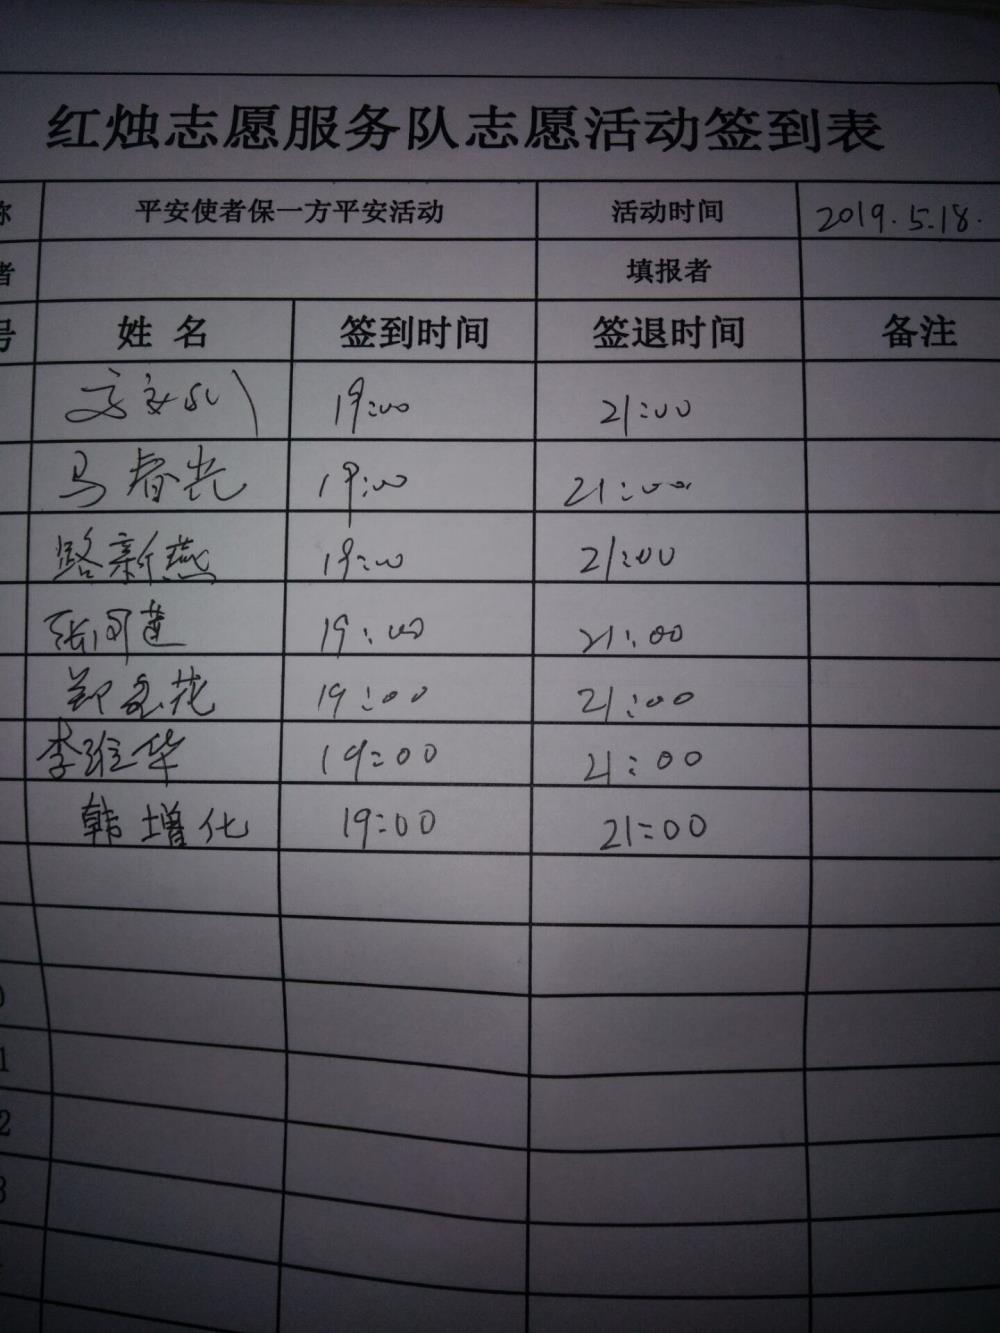 红烛志愿服务队志愿活动签到表
称 平安使者保一方平安活动 活动时间 2019.5.18.
者 填报者
号 姓名 签到时间 签退时间 备注
19:00 21:00
马春光 19:00 21:00
路新燕 19:00 21:00
张同莲 19:00 21:00
郑 花 19:00 21:00
李维华 19:00 21:00
韩增化 19:00 21:00
0
1
2
3